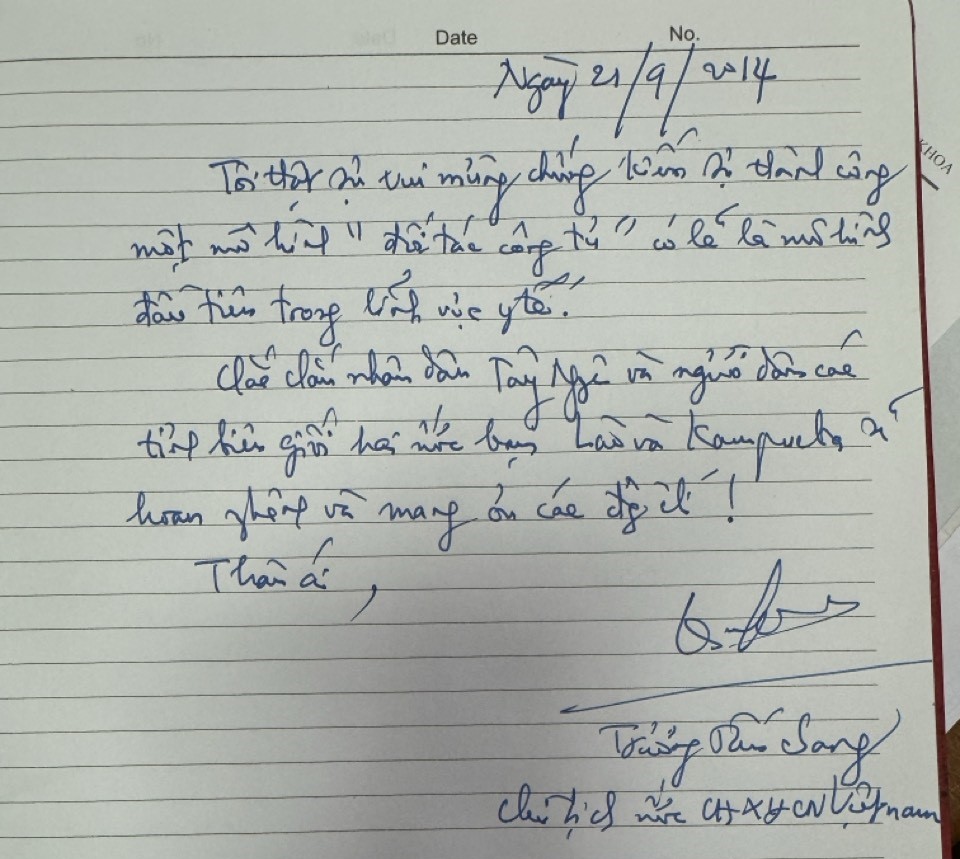 Date No.
Ngày 21/9/2014
Tôi thật sự vui mừng chứng kiến sự thành công
một mô hình " đối tác công tư " có lẽ là mô hình
đầu tiên trong lĩnh vực y tế.
Chắc chắn nhân dân Tây Nguyên và người dân các
tỉnh biên giới hai nước bạn Lào và Kampuchia sẽ
hoan nghênh và mang ơn các đồng chí !
Thân ái,
Trương Tấn Sang
Chủ tịch nước CHXHCN Việt nam
KHOA